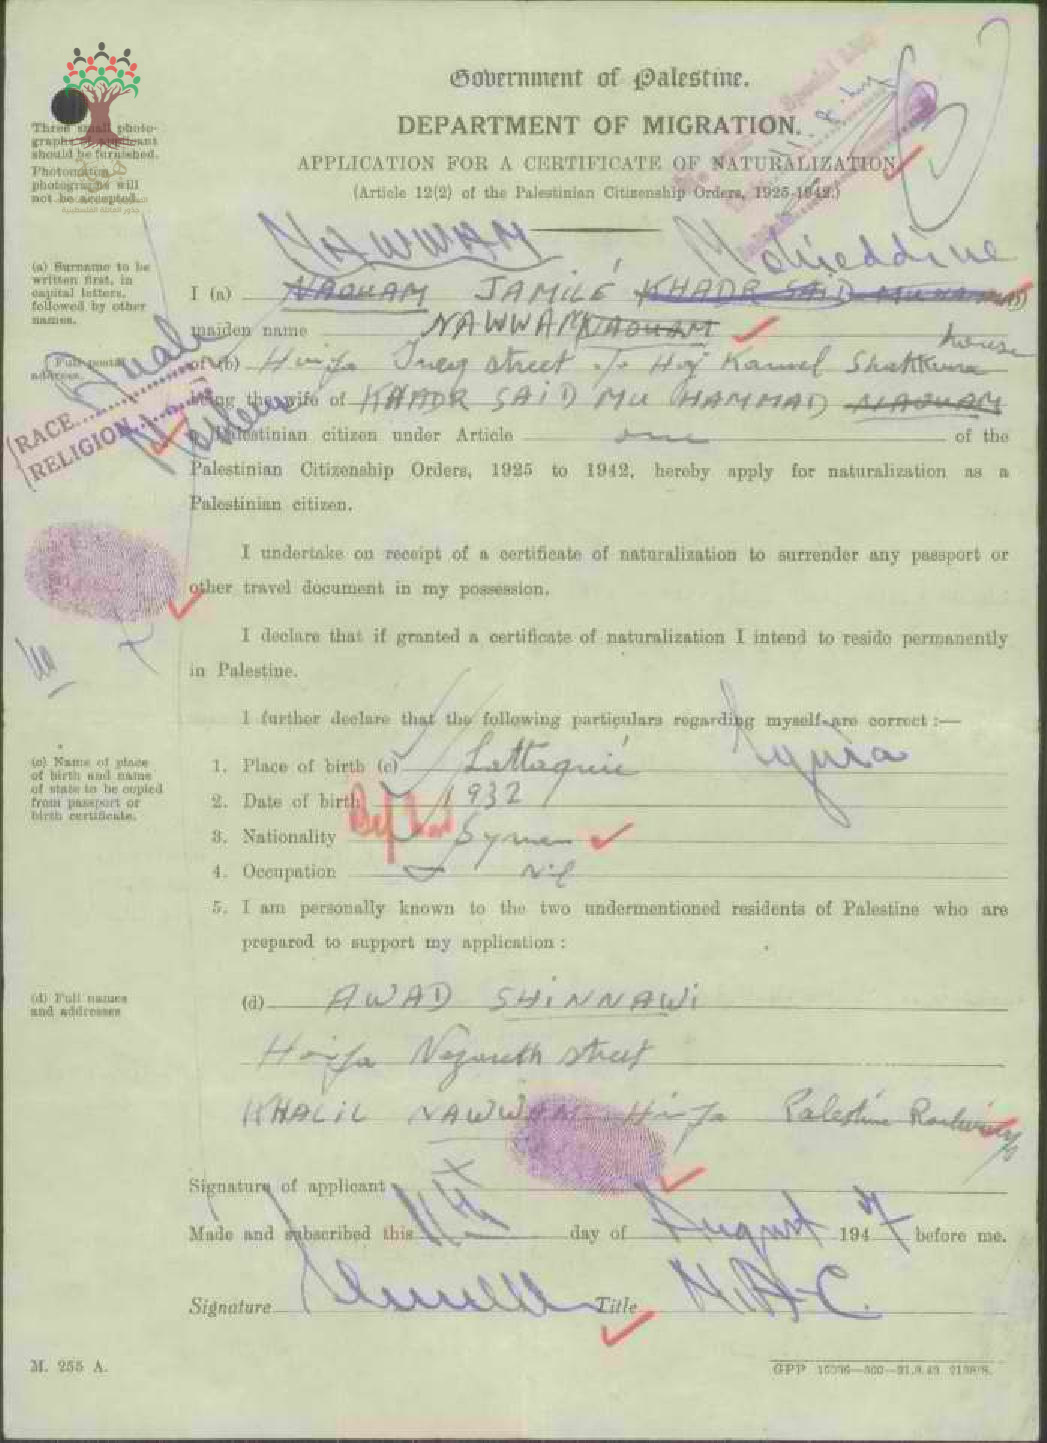 Government of Palestine.
DEPARTMENT OF MIGRATION.
APPLICATION FOR A CERTIFICATE OF NATURALIZATION
(Article 12(2) of the Palestinian Citizenship Orders, 1925-1942.)
Three small photographs of applicant should be furnished.
Photomaton photographs will not be accepted.
NAWWAM Mohieddine
(a) Surname to be written first, in capital letters, followed by other names.
I (a) NAOUAM JAMILÉ KHADR SAID MUHAMMAD
maiden name NAWWAM NAOUAM
house
Full postal address.
of (b) Haifa Iraq street Haj Kamel
being the wife of KHADR SAID MUHAMMAD NAOUAM
RACE Arab
RELIGION Moslem
a Palestinian citizen under Article one of the
Palestinian Citizenship Orders, 1925 to 1942, hereby apply for naturalization as a
Palestinian citizen.
I undertake on receipt of a certificate of naturalization to surrender any passport or
other travel document in my possession.
I declare that if granted a certificate of naturalization I intend to reside permanently
in Palestine.
I further declare that the following particulars regarding myself are correct :—
(c) Name of place of birth and name of state to be copied from passport or birth certificate.
1. Place of birth (c) Lattaquié Syria
2. Date of birth 1932
3. Nationality Syrian
4. Occupation Nil
5. I am personally known to the two undermentioned residents of Palestine who are
prepared to support my application :
(d) Full names and addresses
(d) AWAD SHINNAWI
Haifa Nazareth street
KHALIL NAWWAM Haifa Palestine Railways
Signature of applicant
Made and subscribed this 11th day of August 1947 before me.
Signature Title N.A.C.
M. 255 A.